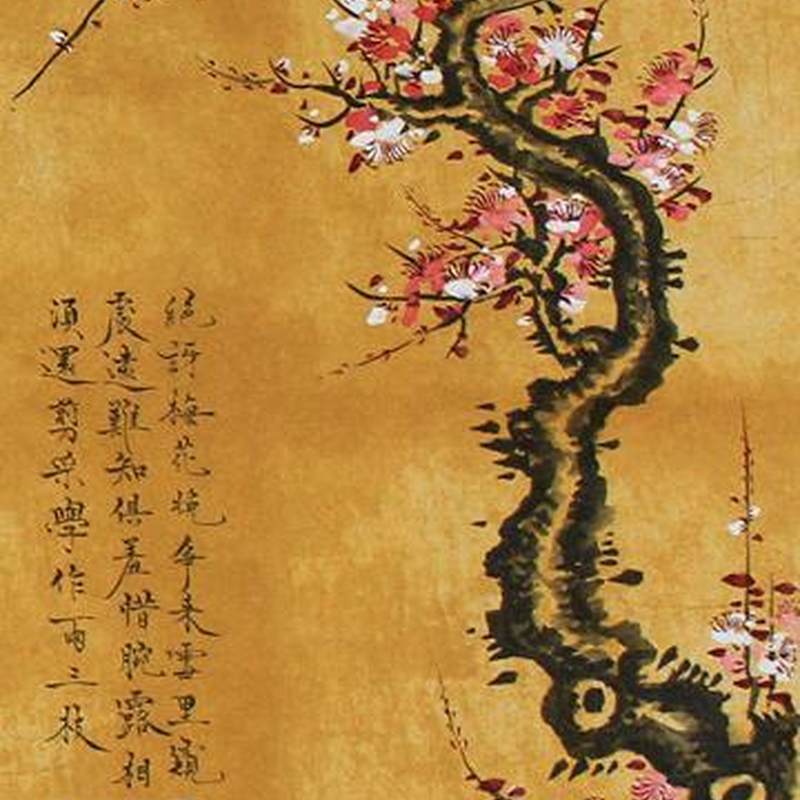 絕訝梅花晚爭来雪里窺
處遠難知俱羞惜腕露相
須還剪采學作両三枝